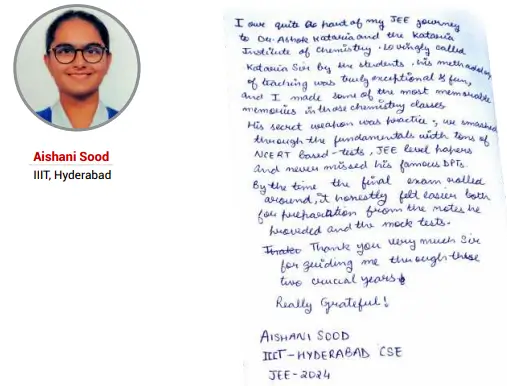 Aishani Sood
IIIT, Hyderabad
I owe quite a part of my JEE journey
to Dr. Ashok Kataria and the Kataria
Institute of Chemistry. Lovingly called
Kataria Sir by his students, his methodology
of teaching was truly exceptional & fun,
and I made some of the most memorable
memories in those chemistry classes
His secret weapon was practice; we smashed
through the fundamentals with tons of
NCERT based-tests, JEE level papers
and never missed his famous DPTs.
By the time the final exam rolled
around, it honestly felt easier both
for preparation from the notes he
provided and the mock tests.
Thank you very much Sir
for guiding me through these
two crucial years
Really Grateful!
AISHANI SOOD
IIIT-HYDERABAD CSE
JEE-2024